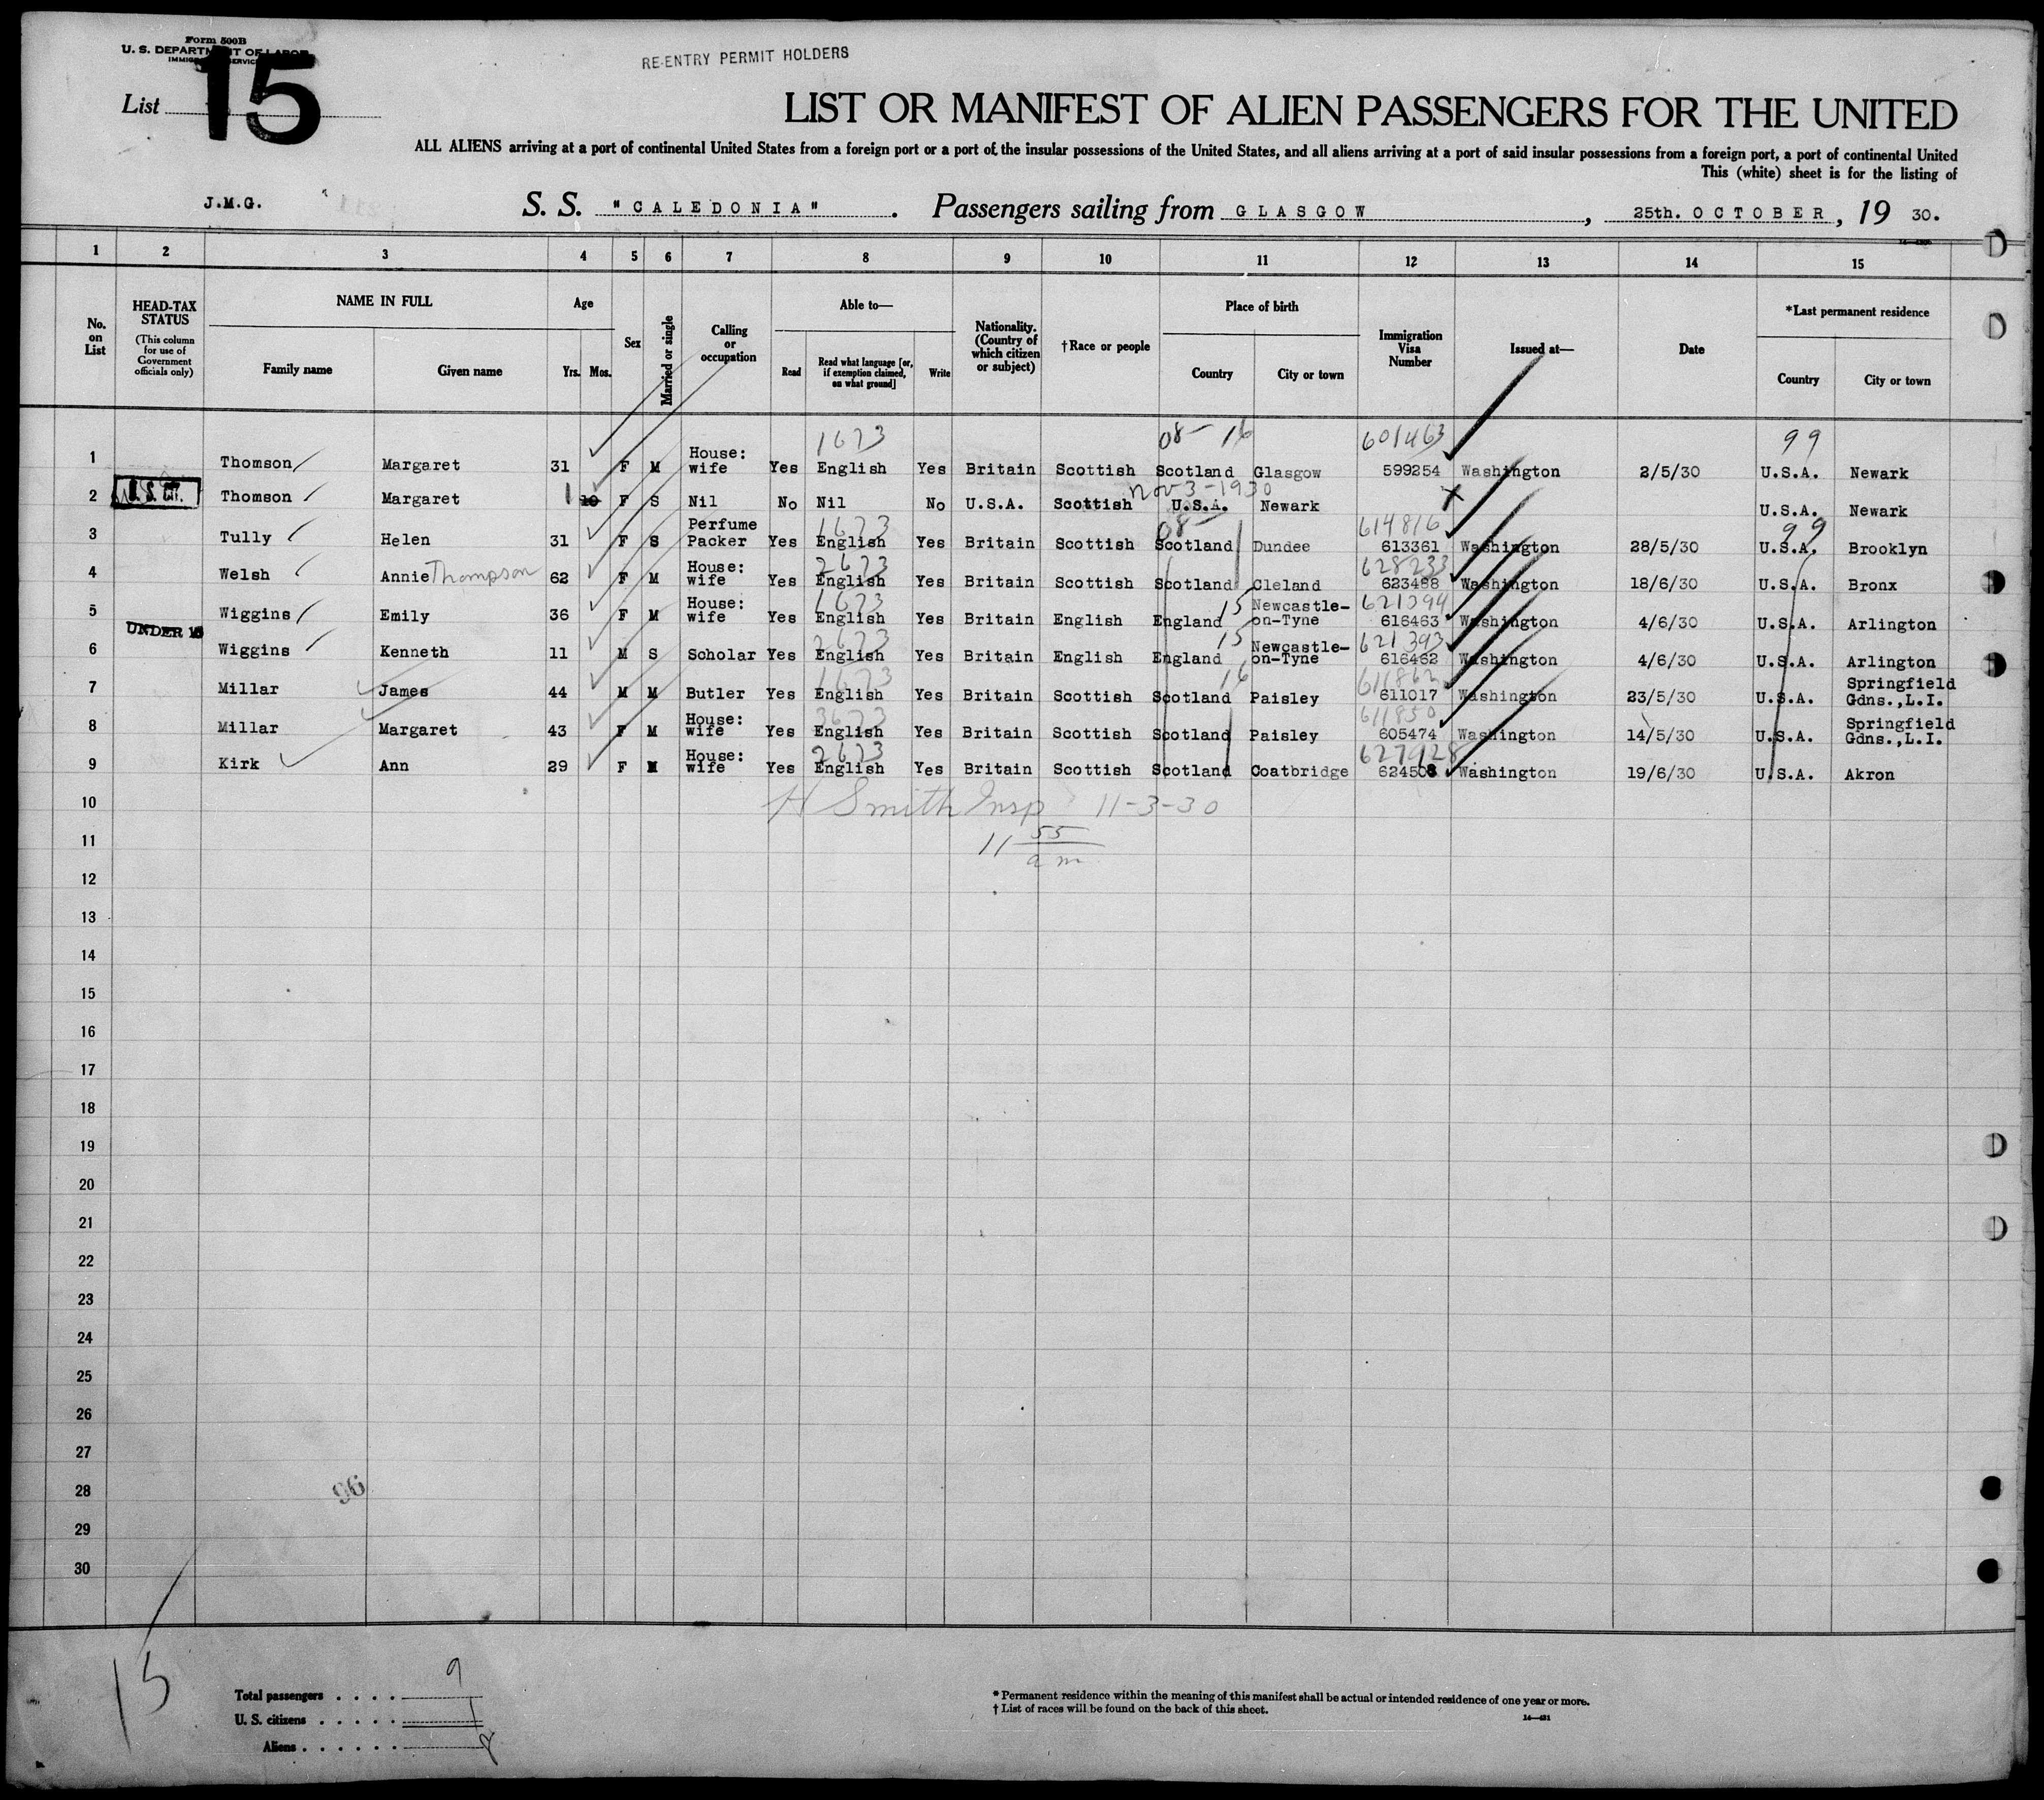 Form 500B
U. S. DEPARTMENT OF LABOR
IMMIGRATION SERVICE
RE-ENTRY PERMIT HOLDERS
List 15
LIST OR MANIFEST OF ALIEN PASSENGERS FOR THE UNITED
ALL ALIENS arriving at a port of continental United States from a foreign port or a port of the insular possessions of the United States, and all aliens arriving at a port of said insular possessions from a foreign port, a port of continental United
This (white) sheet is for the listing of
J.M.G. S. S. "CALEDONIA". Passengers sailing from GLASGOW, 25th. OCTOBER, 19 30.
1 2 3 4 5 6 7 8 9 10 11 12 13 14 15
No. on List
HEAD-TAX STATUS
(This column for use of Government officials only)
NAME IN FULL
Family name Given name
Age
Yrs. Mos.
Sex
Married or single
Calling or occupation
Able to—
Read Read what language [or, if exemption claimed, on what ground] Write
Nationality. (Country of which citizen or subject)
†Race or people
Place of birth
Country City or town
Immigration Visa Number
Issued at—
Date
*Last permanent residence
Country City or town
1673 08- 16 601463 99
1 Thomson Margaret 31 F M House: wife Yes English Yes Britain Scottish Scotland Glasgow 599254 Washington 2/5/30 U.S.A. Newark
Nov 3-1930
2 U.S. CIT. Thomson Margaret 1 10 F S Nil No Nil No U.S.A. Scottish U.S.A. Newark X U.S.A. Newark
1673 08- 614816 99
3 Tully Helen 31 F S Perfume Packer Yes English Yes Britain Scottish Scotland Dundee 613361 Washington 28/5/30 U.S.A. Brooklyn
2673 628233
4 Welsh Annie Thompson 62 F M House: wife Yes English Yes Britain Scottish Scotland Cleland 623488 Washington 18/6/30 U.S.A. Bronx
1673 15 621394
5 Wiggins Emily 36 F M House: wife Yes English Yes Britain English England Newcastle-on-Tyne 616463 Washington 4/6/30 U.S.A. Arlington
UNDER 16
2673 15 621393
6 Wiggins Kenneth 11 M S Scholar Yes English Yes Britain English England Newcastle-on-Tyne 616462 Washington 4/6/30 U.S.A. Arlington
1673 16 611862
7 Millar James 44 M M Butler Yes English Yes Britain Scottish Scotland Paisley 611017 Washington 23/5/30 U.S.A. Springfield Gdns.,L.I.
3673 611850
8 Millar Margaret 43 F M House: wife Yes English Yes Britain Scottish Scotland Paisley 605474 Washington 14/5/30 U.S.A. Springfield Gdns.,L.I.
2673 627928
9 Kirk Ann 29 F M House: wife Yes English Yes Britain Scottish Scotland Coatbridge 624508 Washington 19/6/30 U.S.A. Akron
10 H Smith Insp 11-3-30
11 11 55 am
12
13
14
15
16
17
18
19
20
21
22
23
24
25
26
27
28 96
29
30
15
Total passengers . . . . 9
U. S. citizens . . . . . 1
Aliens . . . . . . 8
* Permanent residence within the meaning of this manifest shall be actual or intended residence of one year or more.
† List of races will be found on the back of this sheet.